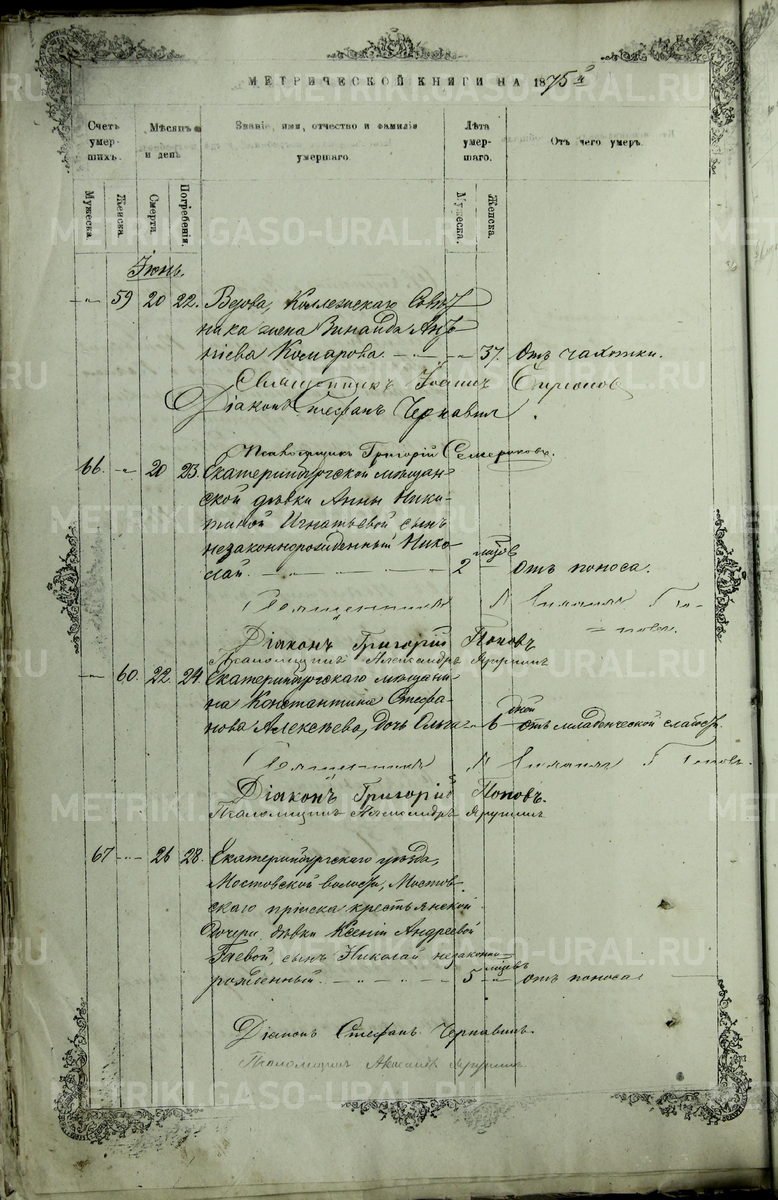 МЕТРИЧЕСКОЙ КНИГИ НА 1875й
Счетъ умершихъ. Мѣсяцъ и день Званіе, имя, отчество и фамилія умершаго. Лѣта умершаго. Отъ чего умеръ.
Мужеска. Женска. Смерти. Погребенія. Мужеска. Женска.
Іюнь.
59 20 22. Вдова, Коллежскаго Совѣт
ника жена Зинаида
Комарова. 37. Отъ чахотки.
Священникъ Іоаннъ
Діаконъ Стефанъ Чернавинъ.
Псаломщикъ Григорій
66. 20 23. Екатеринбургской мѣщан-
ской дѣвки Анны Ники-
тиной Игнатьевой сынъ
незаконнорожденный Нико-
лай. 2 мѣсяцовъ отъ поноса.
Священникъ
повъ.
Діаконъ Григорій Поповъ
Псаломщикъ Александръ
60. 22. 24. Екатеринбургскаго мѣщани-
на Константина Стефа-
нова Алексѣева, дочь Ольга 6 дней отъ младенческой слабости.
Священникъ Поповъ.
Діаконъ Григорій Поповъ.
Псаломщикъ Александръ
67 26 28. Екатеринбургскаго уѣзда,
Мостовской волости, Мостов-
скаго пріиска крестьянской
дочери, дѣвки Ксеніи Андреевой
сынъ Николай незаконно-
рожденный. 5 мѣсяцевъ отъ поноса
Діаконъ Стефанъ Чернавинъ.
Псаломщикъ
METRIKI.GASO-URAL.RU